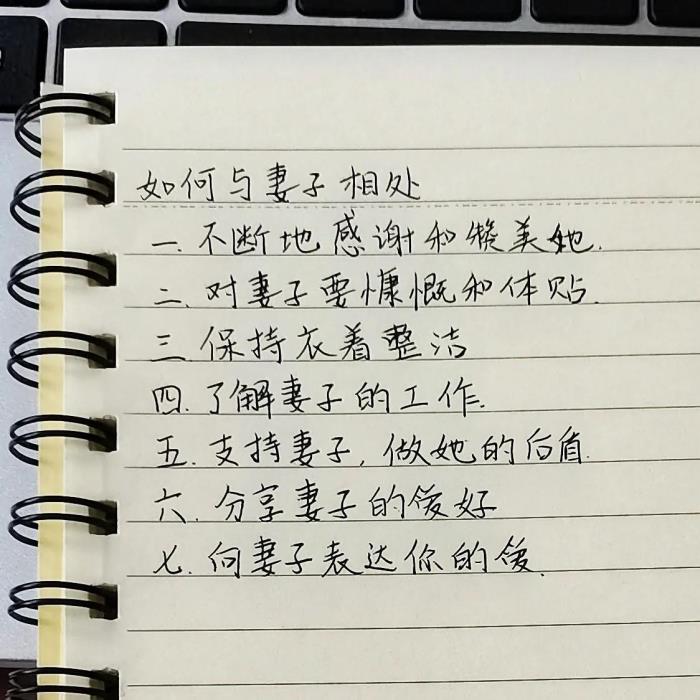 如何与妻子相处
一.不断地感谢和赞美她.
二.对妻子要慷慨和体贴.
三.保持衣着整洁
四.了解妻子的工作.
五.支持妻子,做她的后盾.
六.分享妻子的爱好
七.向妻子表达你的爱.